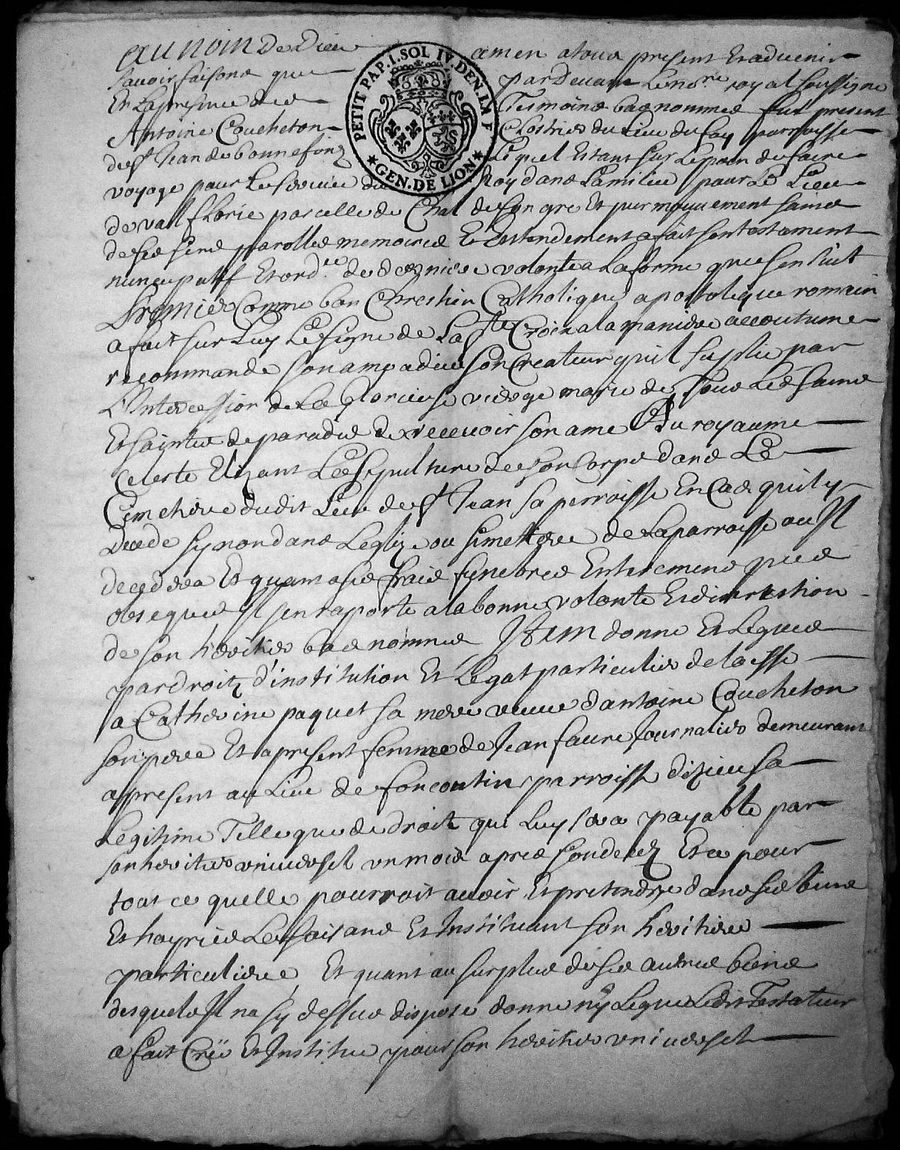 au nom de Dieu amen a tous presents et advenir
savoir faisons que par devant le no.re royal soussigne
Et en presence des Tesmoins bas nommes fut present
Antoine Coucheton Clostrier du lieu du fay parroisse
de st Jean de bonnefonz Lequel Estant sur le poin de faire
voyage pour le service du Roy dans la milice pour le lieu
de vall florie parcelle de de son gre Et pur mouuement saina
de ses sens parolles memoires Et Entendement a fait son testament
nuncupatif Et ord.ce de derniere volonte a la forme que s'en suit
Premier Comme bon Chrestien Catholique apostolique romain
a fait sur luy Le signe de La ste Croix a la maniere accoutume
recommande son ame a dieu son Createur qu'il suplie par
L'Intercession de La Glorieuse vierge marie de tous Les saina
Et saintes de paradis de recevoir son ame Au royaume
Celeste Elizant La sepulture de son Corps dans Le
Cimetiere dudit Lieu de st Jean sa parroisse En Cas qu'il y
decede sy non dans Leglize ou simetiere de La parroisse ou Il
decedera Et quant a ses frais funebres Enterrement que
obseques Il s'en raporte a la bonne volonte Et discrestion
de son heritier bas nomme Item donne Et Legue
par droit d'institution Et Legat particulier delaisse
a Catherine paquet sa mere veuve d'antoine Coucheton
son pere Et a present femme de Jean faure Journalier demeurant
appresent au Lieu de foncontin parroisse d'izieu sa
Legitime Telle que de droit qui Luy sera payable par
son heritier universel un mois apres son decez Et ce pour
tout ce quelle pourroit avoir Et pretendre dans ses biens
Et hoyries Le faisans Et Instituant son heritiere
particuliere Et quant au surplus de ses autres biens
desquels Il na sy dessus dispose donne ny Legue Ledit Testateur
a fait Cree Et Institue pour son heritier universel
PETIT PAP. 1. SOL IV. DEN. LA F.
GEN. DE LION